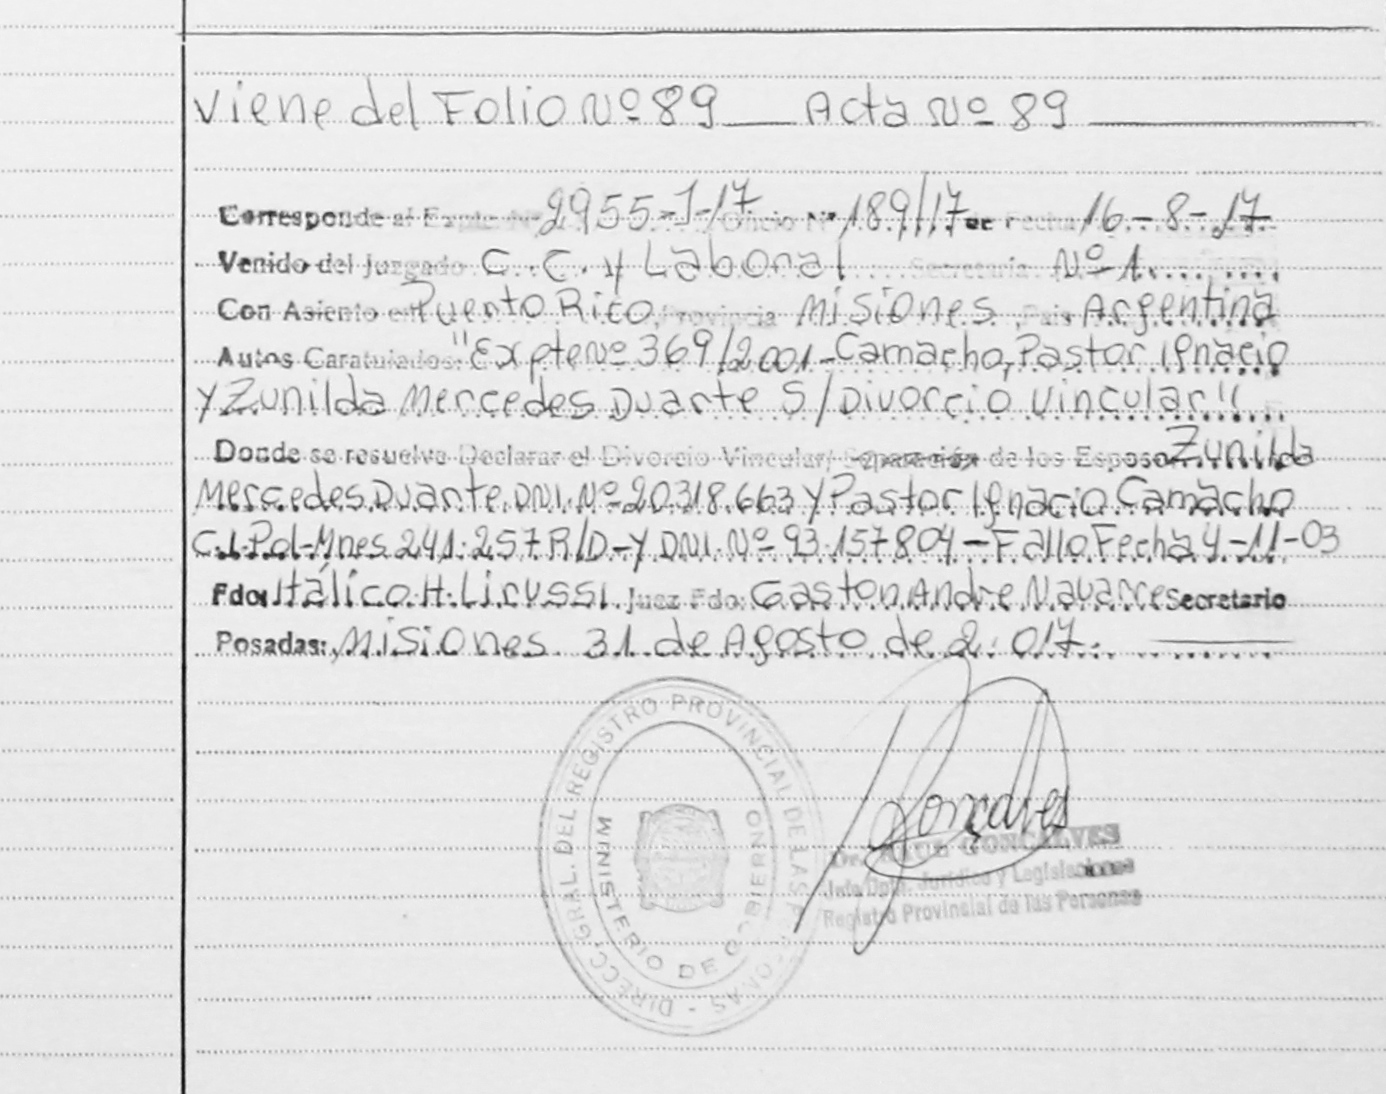 Viene del Folio Nº 89 ___ Acta Nº 89
Corresponde al Expte. Nº 2955-J-17 Oficio Nº 189/17 de Fecha 16-8-17
Venido del Juzgado C. C. y Laboral Secretaria Nº 1
Con Asiento en Puerto Rico Provincia Misiones Pais Argentina
Autos Caratulados: "Expte Nº 369/2001-Camacho, Pastor Ignacio
y Zunilda Mercedes Duarte S/Divorcio Vincular"
Donde se resuelve Declarar el Divorcio Vincular/ Separación de los Esposos Zunilda
Mercedes Duarte DNI. Nº 20.318.663 y Pastor Ignacio Camacho
C.I. Pol-Mnes 241.257 R/D-y DNI. Nº 93.157804-Fallo Fecha 4-11-03
Fdo: Itálico H. Lirussi Juez Fdo: Gaston Andre Navarre Secretario
Posadas: Misiones 31 de Agosto de 2.017.
DIRECC. GRAL. DEL REGISTRO PROVINCIAL DE LAS PERSONAS
MINISTERIO DE GOBIERNO
Goncalves
Dr. RAUL GONCALVES
Jefe Dpto. Jurídico y Legislaciones
Registro Provincial de las Personas